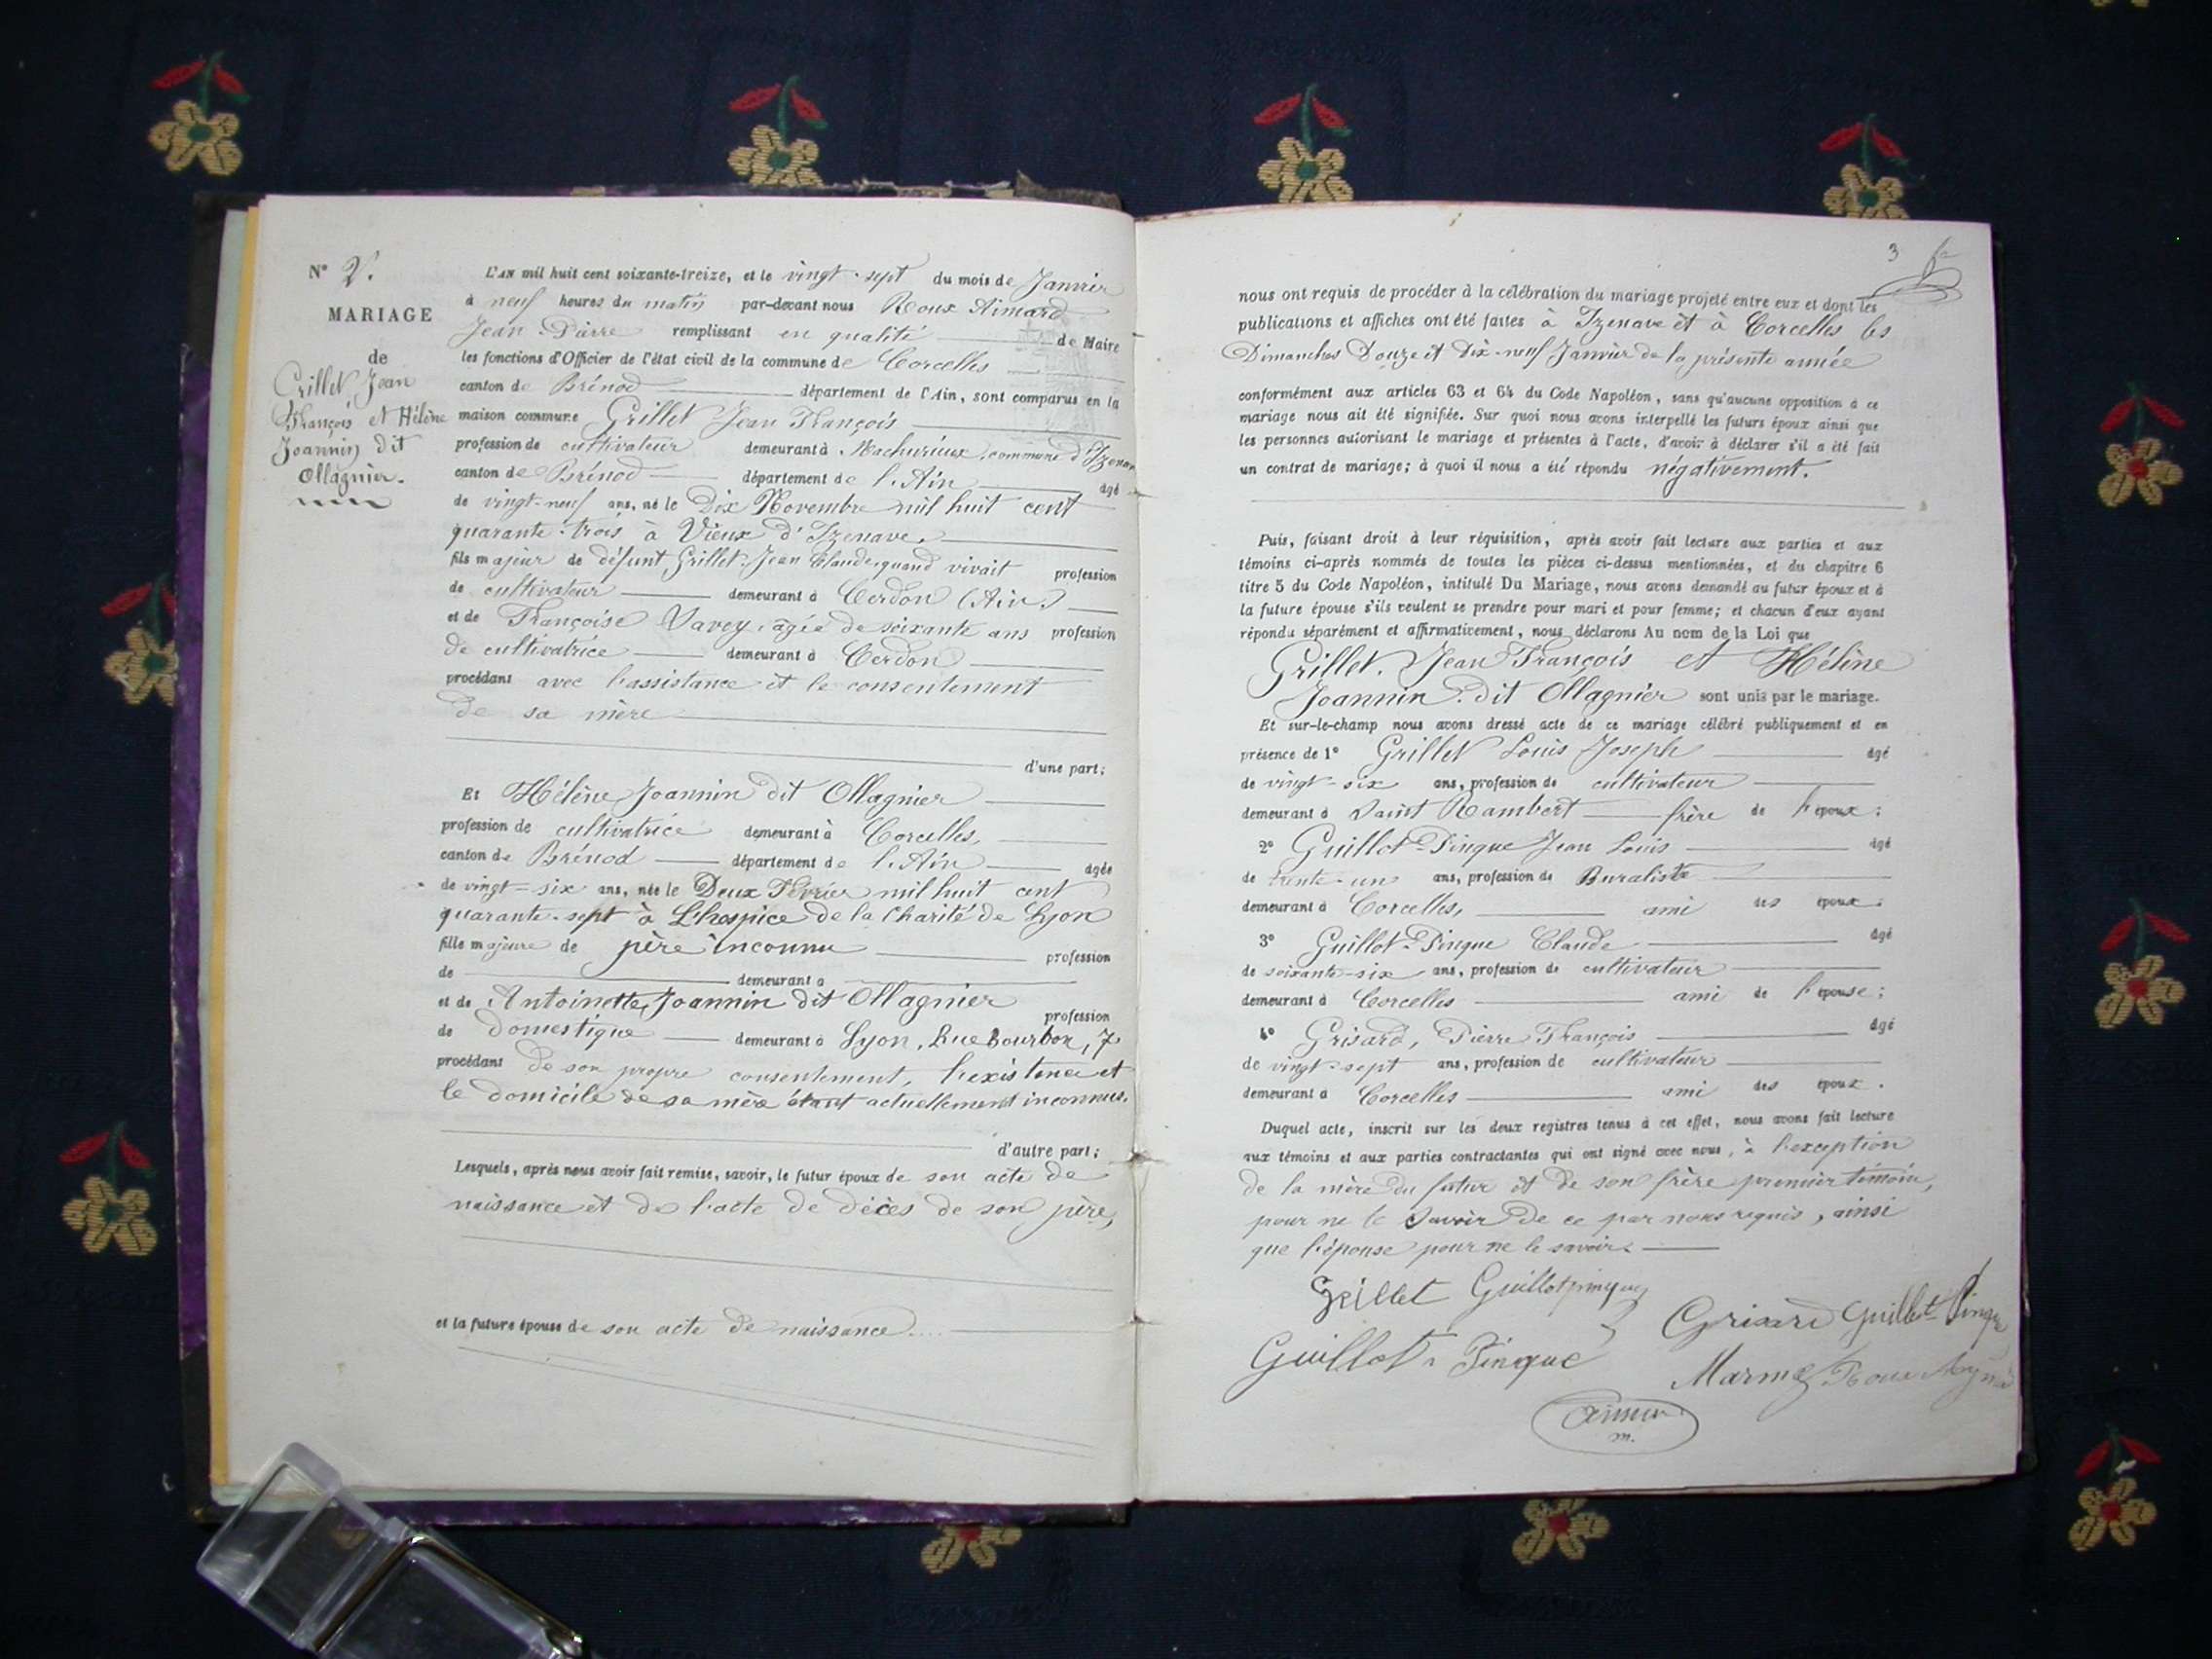 N° 2.
MARIAGE
de
Grillet Jean
François et Hélène
Joannin dit
Ollagnier.
L'AN mil huit cent soixante-treize, et le vingt-sept du mois de Janvier
à neuf heures du matin par-devant nous Roux Aimard
Jean-Pierre remplissant en qualité de Maire
les fonctions d'Officier de l'état civil de la commune de Corcelles
canton de Brénod département de l'Ain, sont comparus en la
maison commune Grillet Jean François
profession de cultivateur demeurant à Machurieux, commune d'Izenave
canton de Brénod département de l'Ain âgé
de vingt-neuf ans, né le Dix Novembre mil huit cent
quarante-trois à Vieux d'Izenave,
fils majeur de défunt Grillet Jean Claude, quand vivait profession
de cultivateur demeurant à Cerdon (Ain)
et de Françoise Vavey, agée de soixante ans profession
de cultivatrice demeurant à Cerdon
procédant avec l'assistance et le consentement
de sa mère
d'une part;
Et Hélène Joannin dit Ollagnier
profession de cultivatrice demeurant à Corcelles,
canton de Brénod département de l'Ain âgée
de vingt-six ans, née le Deux Février mil huit cent
quarante-sept à L'hospice de la Charité de Lyon
fille majeure de père inconnu profession
de demeurant à
et de Antoinette Joannin dit Ollagnier profession
de domestique demeurant à Lyon, Rue Bourbon, 7.
procédant de son propre consentement, l'existence et
le domicile de sa mère étant actuellement inconnus.
d'autre part;
Lesquels, après nous avoir fait remise, savoir, le futur époux de son acte de
naissance et de l'acte de décès de son père,
et la future épouse de son acte de naissance....
3
nous ont requis de procéder à la célébration du mariage projeté entre eux et dont les
publications et affiches ont été faites à Izenave et à Corcelles les
Dimanches Douze et Dix-neuf Janvier de la présente année
conformément aux articles 63 et 64 du Code Napoléon, sans qu'aucune opposition à ce
mariage nous ait été signifiée. Sur quoi nous avons interpellé les futurs époux ainsi que
les personnes autorisant le mariage et présentes à l'acte, d'avoir à déclarer s'il a été fait
un contrat de mariage; à quoi il nous a été répondu négativement.
Puis, faisant droit à leur réquisition, après avoir fait lecture aux parties et aux
témoins ci-après nommés de toutes les pièces ci-dessus mentionnées, et du chapitre 6
titre 5 du Code Napoléon, intitulé Du Mariage, nous avons demandé au futur époux et à
la future épouse s'ils veulent se prendre pour mari et pour femme; et chacun d'eux ayant
répondu séparément et affirmativement, nous déclarons Au nom de la Loi que
Grillet Jean François et Hélène
Joannin dit Ollagnier sont unis par le mariage.
Et sur-le-champ nous avons dressé acte de ce mariage célébré publiquement et en
présence de 1° Grillet Louis Joseph âgé
de vingt-six ans, profession de cultivateur
demeurant à Saint Rambert frère de l'époux;
2° Guillot-Pingue Jean Louis âgé
de trente-un ans, profession de Buraliste
demeurant à Corcelles, ami des époux;
3° Guillot-Pingue Claude âgé
de soixante-six ans, profession de cultivateur
demeurant à Corcelles ami de l'épouse;
4° Grisard, Pierre François âgé
de vingt-sept ans, profession de cultivateur
demeurant à Corcelles ami des époux.
Duquel acte, inscrit sur les deux registres tenus à cet effet, nous avons fait lecture
aux témoins et aux parties contractantes qui ont signé avec nous, à l'exception
de la mère du futur et de son frère premier témoin,
pour ne le Savoir de ce par nous requis, ainsi
que l'épouse pour ne le savoir.
Grillet Guillotpingue
Grisard Guillot Pingue
Guillot-Pingue
Roux